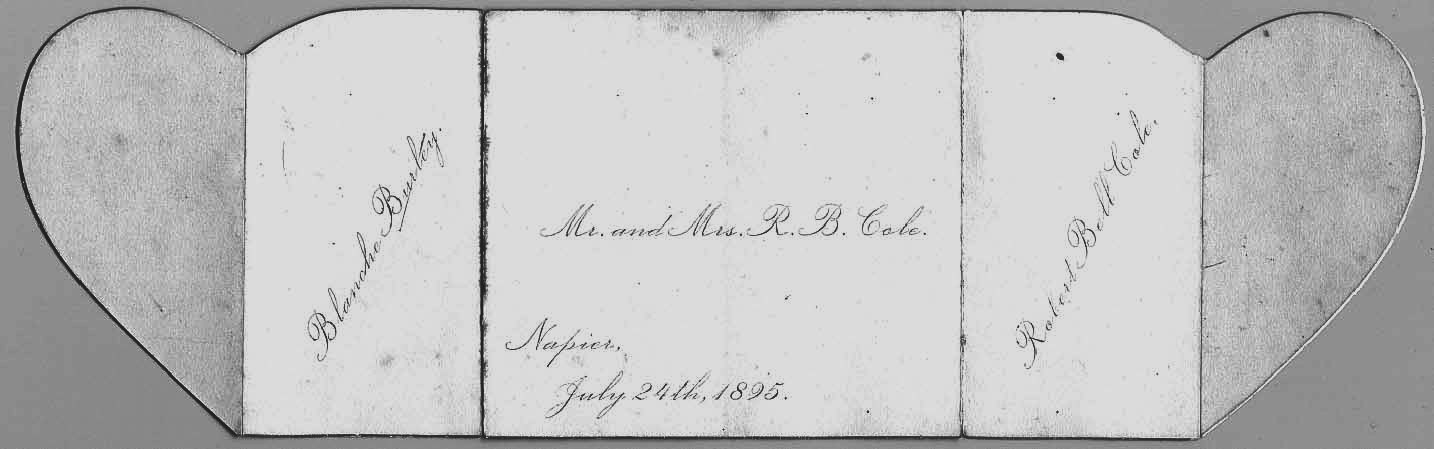 Blanche Burley.
Mr. and Mrs. R. B. Cole.
Napier,
July 24th, 1895.
Robert Bell Cole.